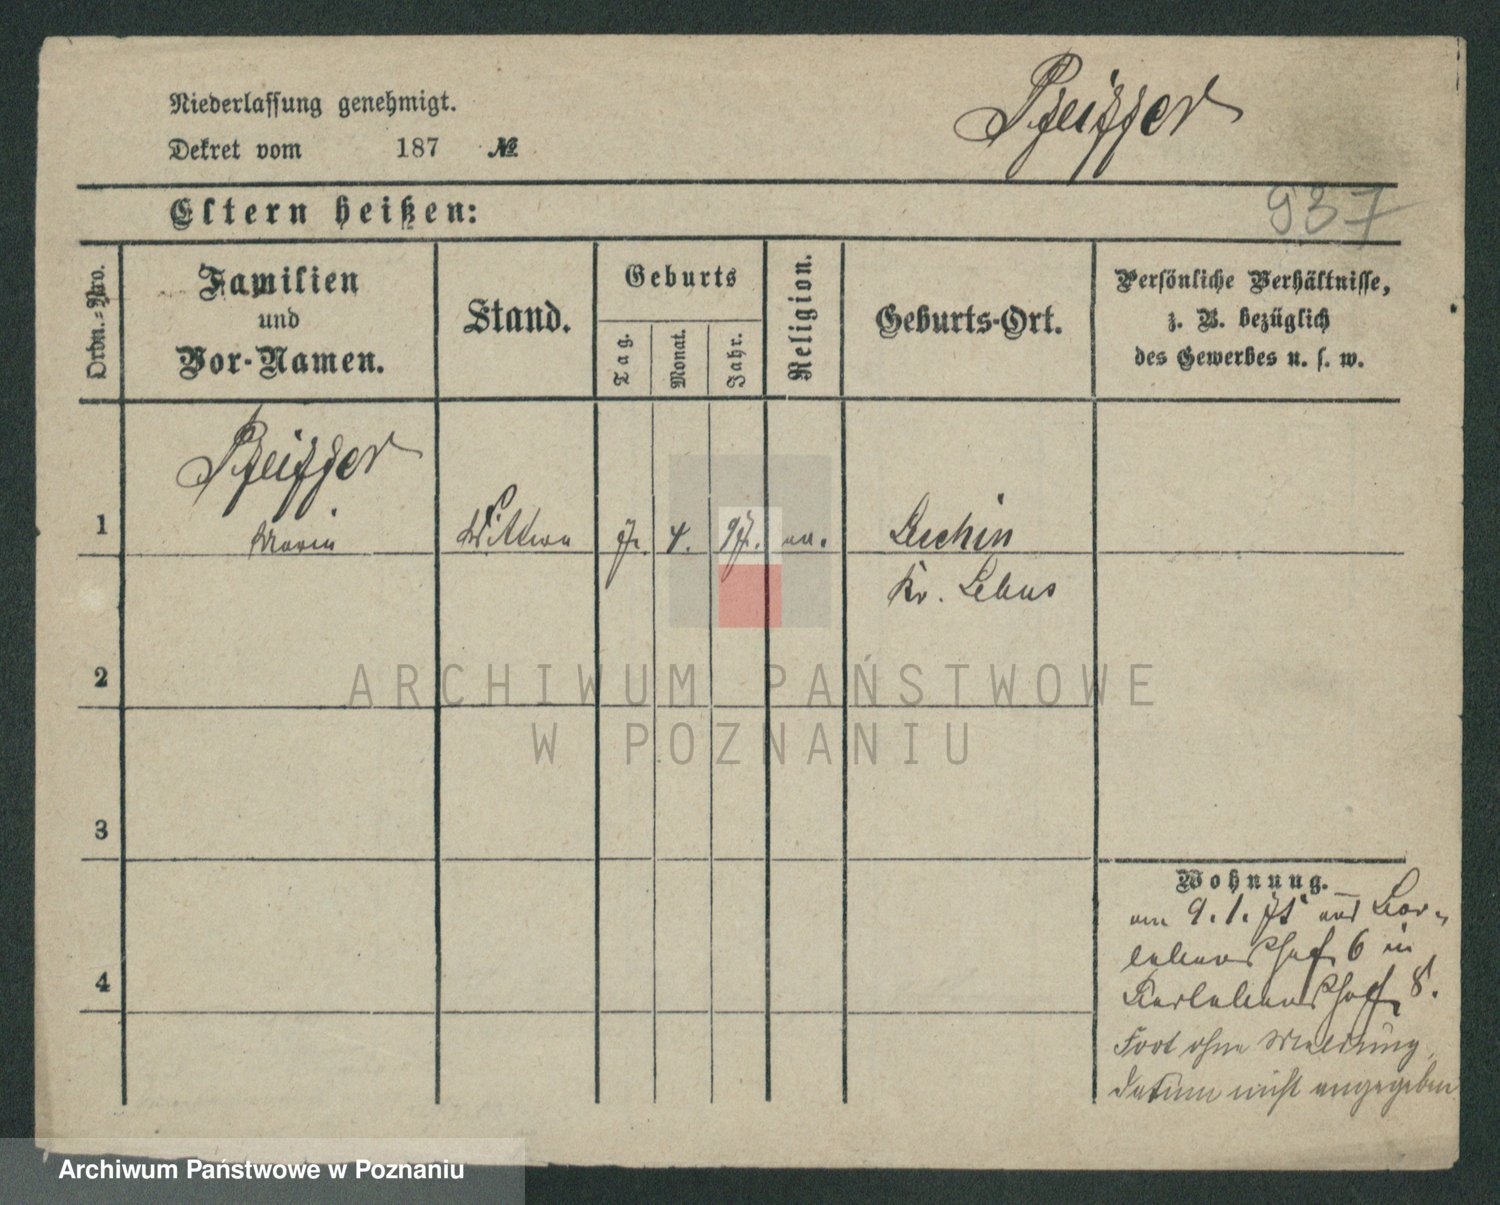 Niederlassung genehmigt.
Dekret vom 187 №
Pfeiffer
937
Eltern heißen:
Ordn.-Nro.
Familien
und
Vor-Namen.
Stand.
Geburts
Tag.
Monat.
Jahr.
Religion.
Geburts-Ort.
Persönliche Verhältnisse,
z. B. bezüglich
des Gewerbes u. s. w.
Pfeiffer
1 Marie Wittwe 4. ev. Lechin
Kr. Lebus
2
3
4
Wohnung.
am 9. 1. aus
6 in
8.
Fort ohne Meldung,
Datum nicht angegeben
ARCHIWUM PAŃSTWOWE
W POZNANIU
Archiwum Państwowe w Poznaniu